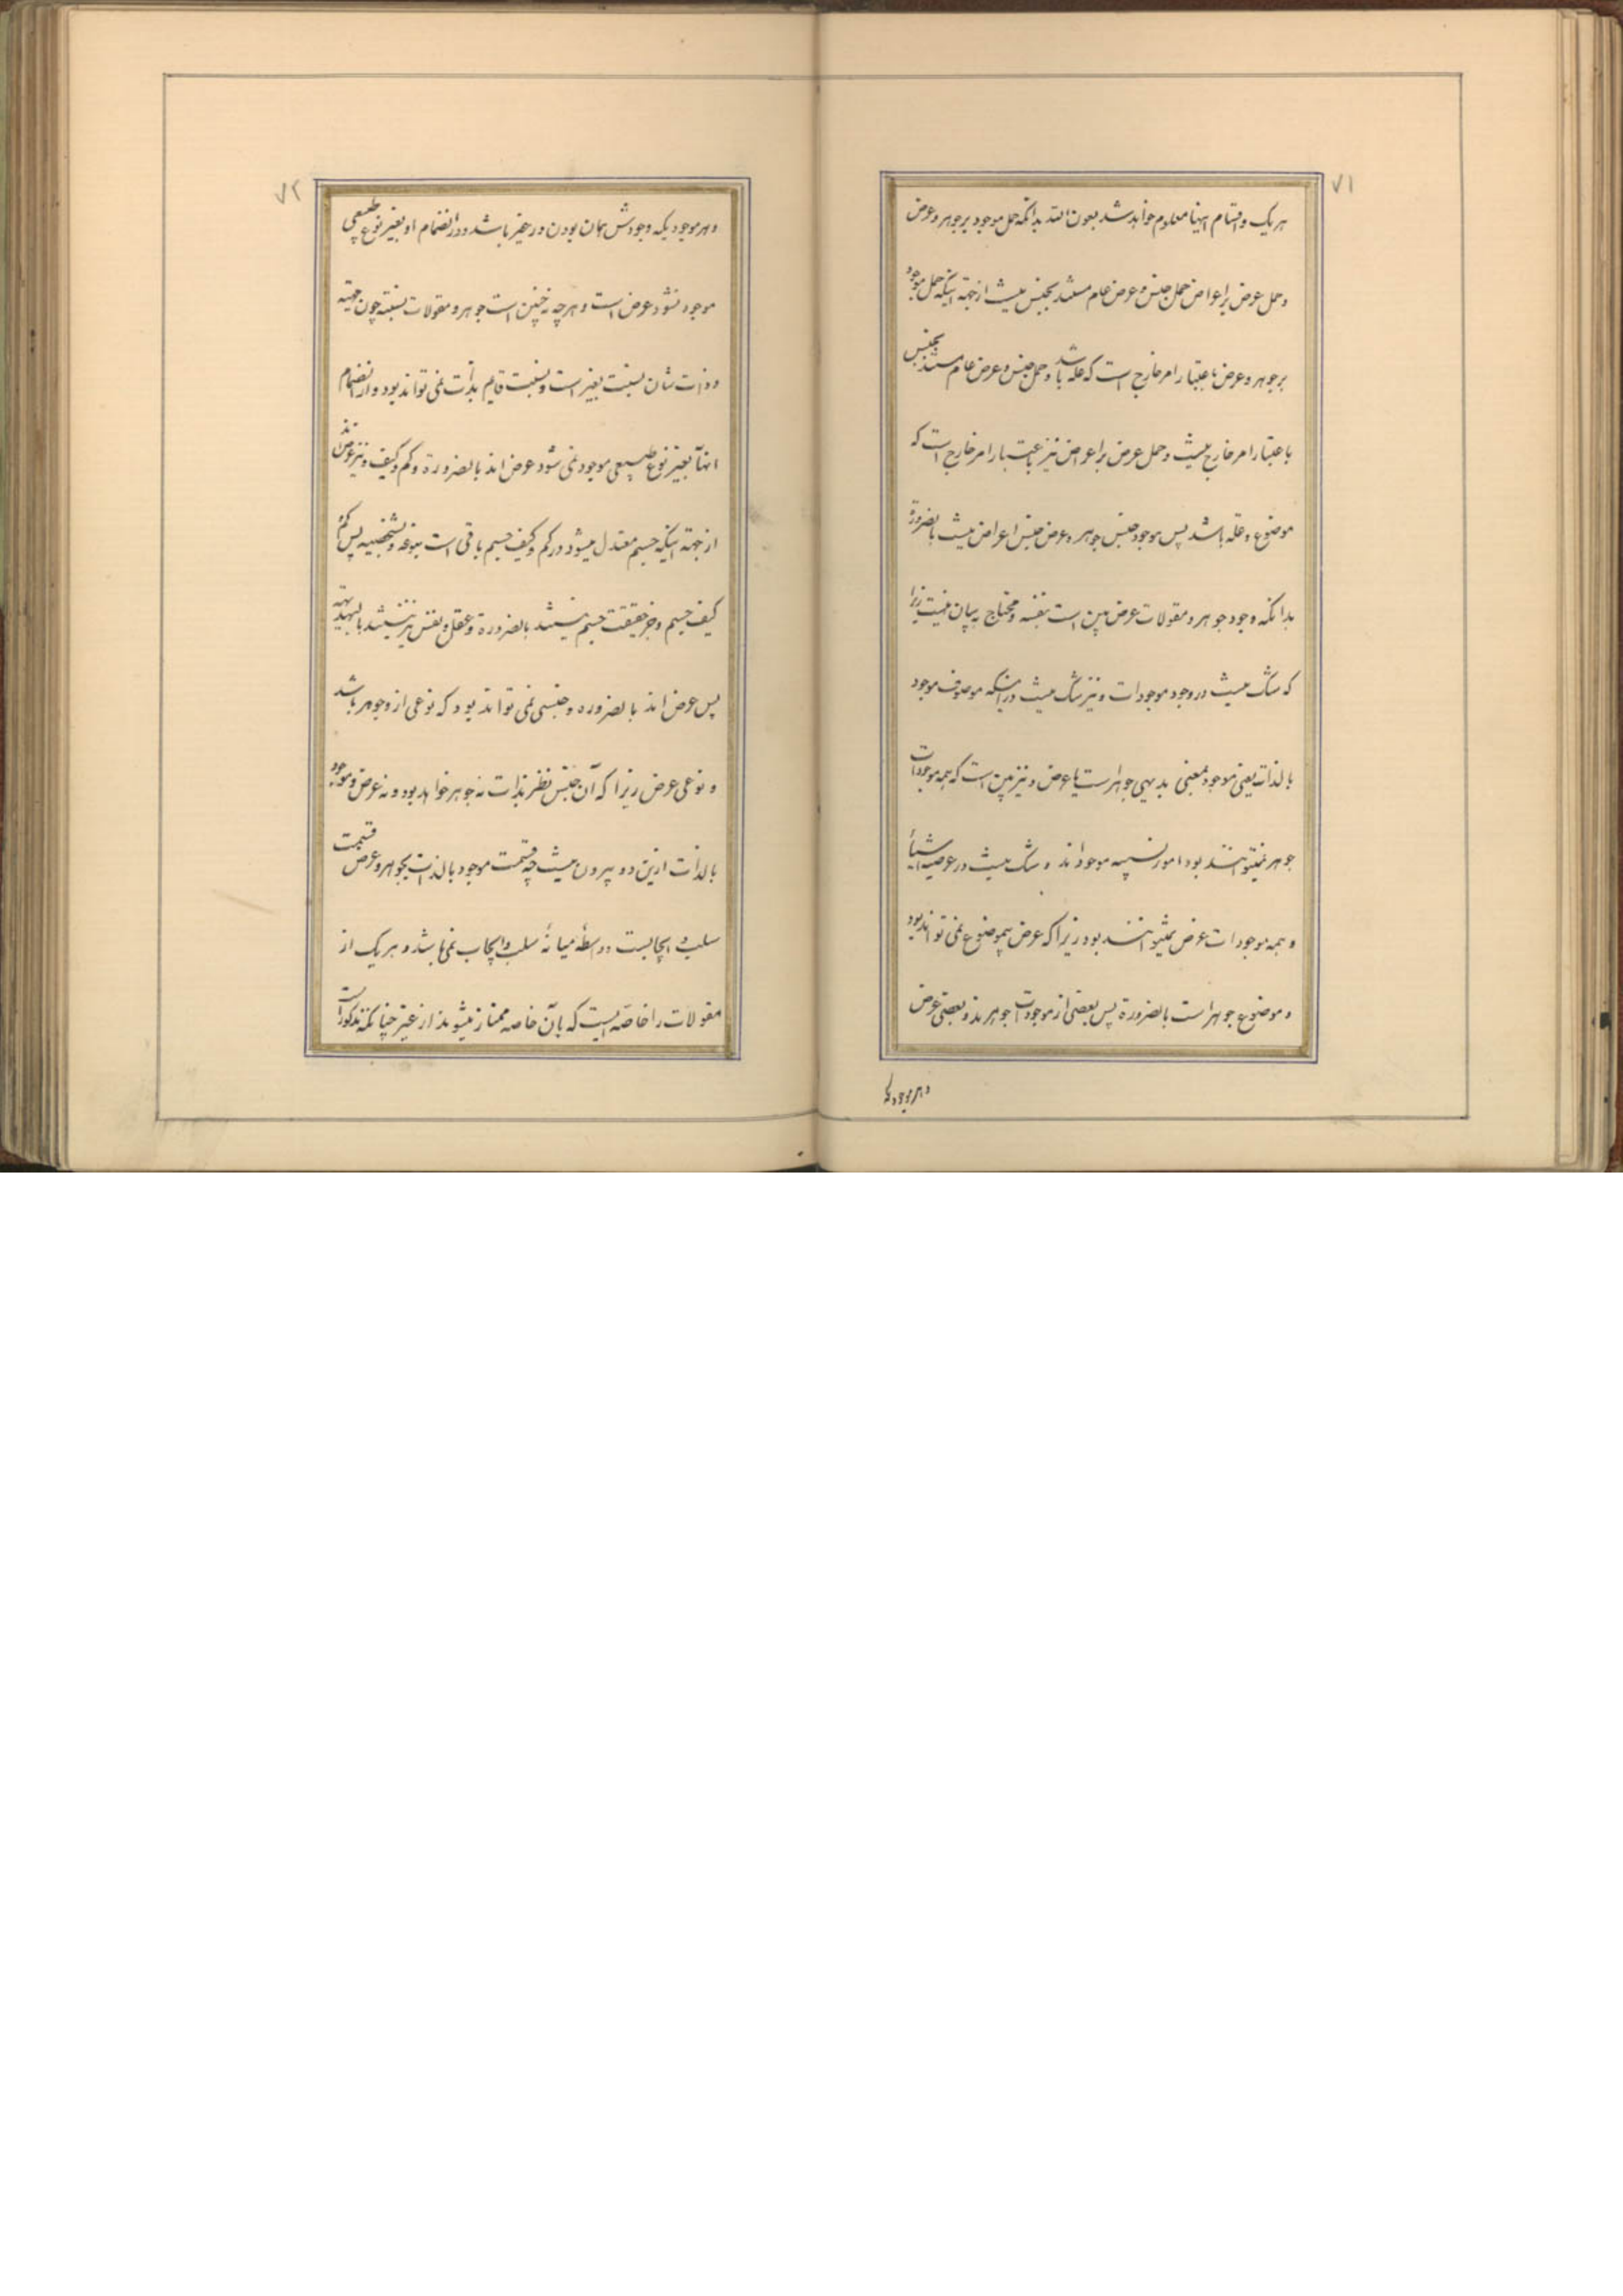 ۷۱
هر یک و اقسام اینها معلوم خواهد شد بعون الله بدانکه حمل موجود بر جوهر و عرض
و حمل عرض بر اعراض حمل جنس و عرض عام مستند بجنس نیست از جهة اینکه حمل موجود
بر جوهر و عرض باعتبار امر خارج است که علة باشد و حمل جنس و عرض عام مستند بجنس
باعتبار امر خارج نیست و حمل عرض بر اعراض نیز باعتبار امر خارج است که
موضوع و علة باشد پس موجود جنس جوهر و عرض جنس اعراض نیست بالضرورة
بدانکه وجود جوهر و مقولات عرض مبین است بنفسه و محتاج به بیان نیست زیرا
که شک نیست در وجود موجودات و نیز شک نیست در اینکه موصوف موجود
بالذات یعنی موجود بمعنی بدیهی جوهر است یا عرض و نیز مبین است که همه موجودات
جوهر نمیتوانند بود امور نسبیه موجودند و شک نیست در عرضیة اشیاء
و همه موجودات عرض نمیتوانند بود زیرا که عرض بیموضوع نمی تواند بود
و موضوع جوهر است بالضرورة پس بعضی از موجودات جوهرند و بعضی عرض
و هر موجودیکه
۷۲
و هر موجودیکه وجودش همان بودن در غیر باشد و در انضمام او بغیر نوع طبیعی
موجود نشود عرض است و هر چه نه چنین است جوهر و مقولات نسبته چون حقیقة
و ذات شان نسبت بغیر است و نسبت قایم بذات نمی تواند بود و از انضمام
اینها بغیر نوع طبیعی موجود نمی شود عرض اند بالضرورة و کم و کیف و نیز عرض اند
از جهة اینکه جسم معتدل میشود در کم و کیف جسم باقی است بنوعه و بشخصیه پس کم و
کیف جسم جزء حقیقت جسم نیستند بالضرورة و عقل و نفس نیز نیستند بالبدیهة
پس عرض اند بالضروره و جنسی نمی تواند بود که نوعی از و جوهر باشد
و نوعی عرض زیرا که آن جنس نظر بذات نه جوهر خواهد بود و نه عرض و موجود
بالذات ازین دو بیرون نیست چه قسمت موجود بالذات بجوهر و عرض قسمت
سلب و ایجابست و واسطهٔ میانهٔ سلب و ایجاب نمی باشد و هر یک از
مقولات را خاصّه ایست که بآن خاصه ممتاز میشوند از غیر چنانکه مذکور است